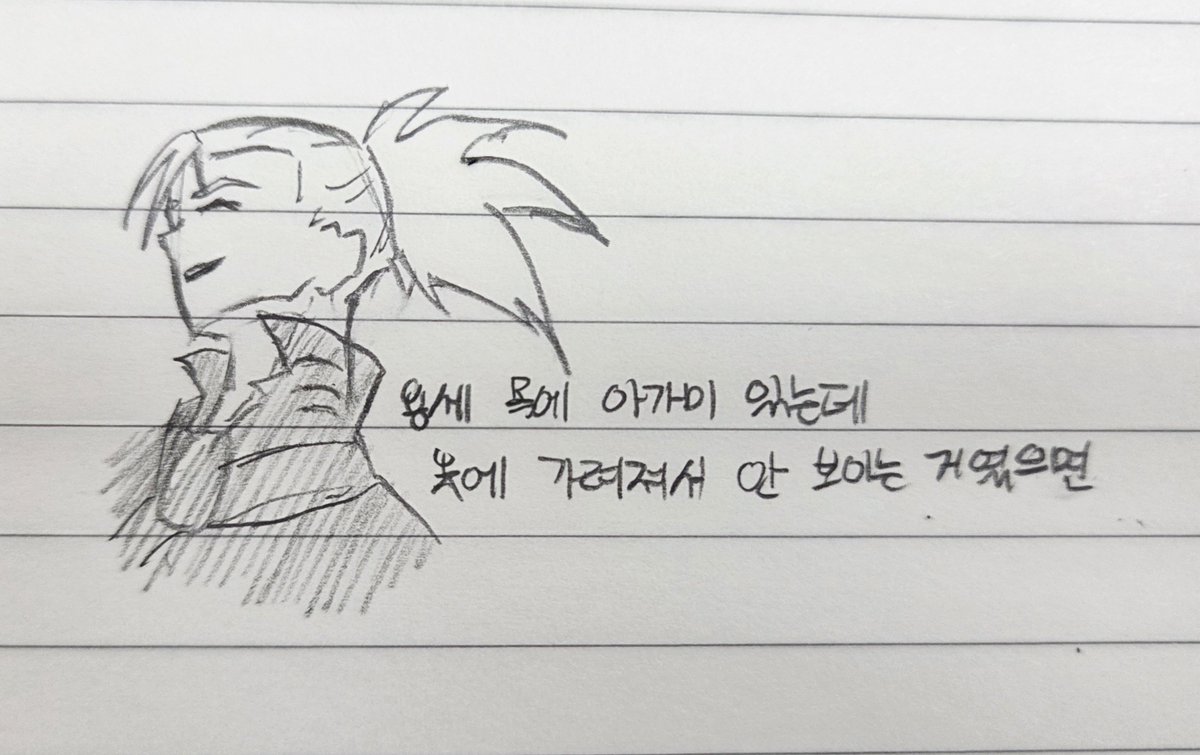 왕세 목에 아가미 있는데
옷에 가려져서 안 보이는 거였으면